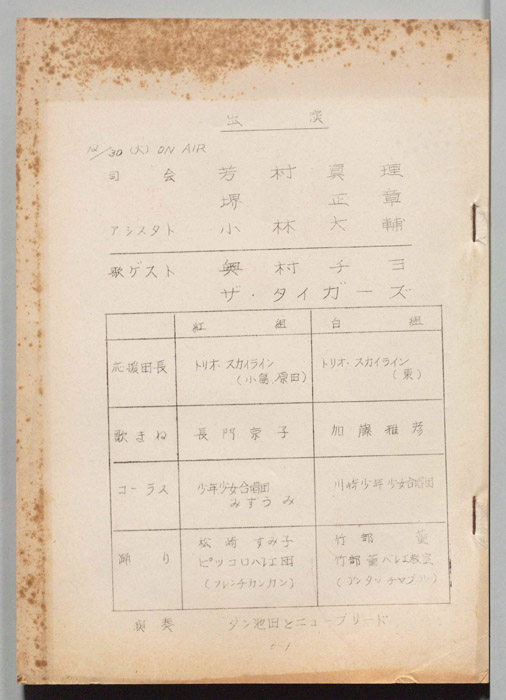 出演
12/30 (火) ON AIR
司会 芳村真理
堺正章
アシスタト 小林大輔
歌ゲスト 奥村チヨ
ザ・タイガーズ
紅組 白組
応援団長 トリオ・スカイライン トリオ・スカイライン
(小島、原田) (東)
歌まね 長門蒙子 加藤雅彦
コーラス 少年少女合唱団 川崎少年少女合唱団
みずうみ
踊り 松崎すみ子 竹部薫
ピッコロバレエ団 竹部薫バレエ教室
(フレンチカンカン)
演奏 ダン池田とニューブリード